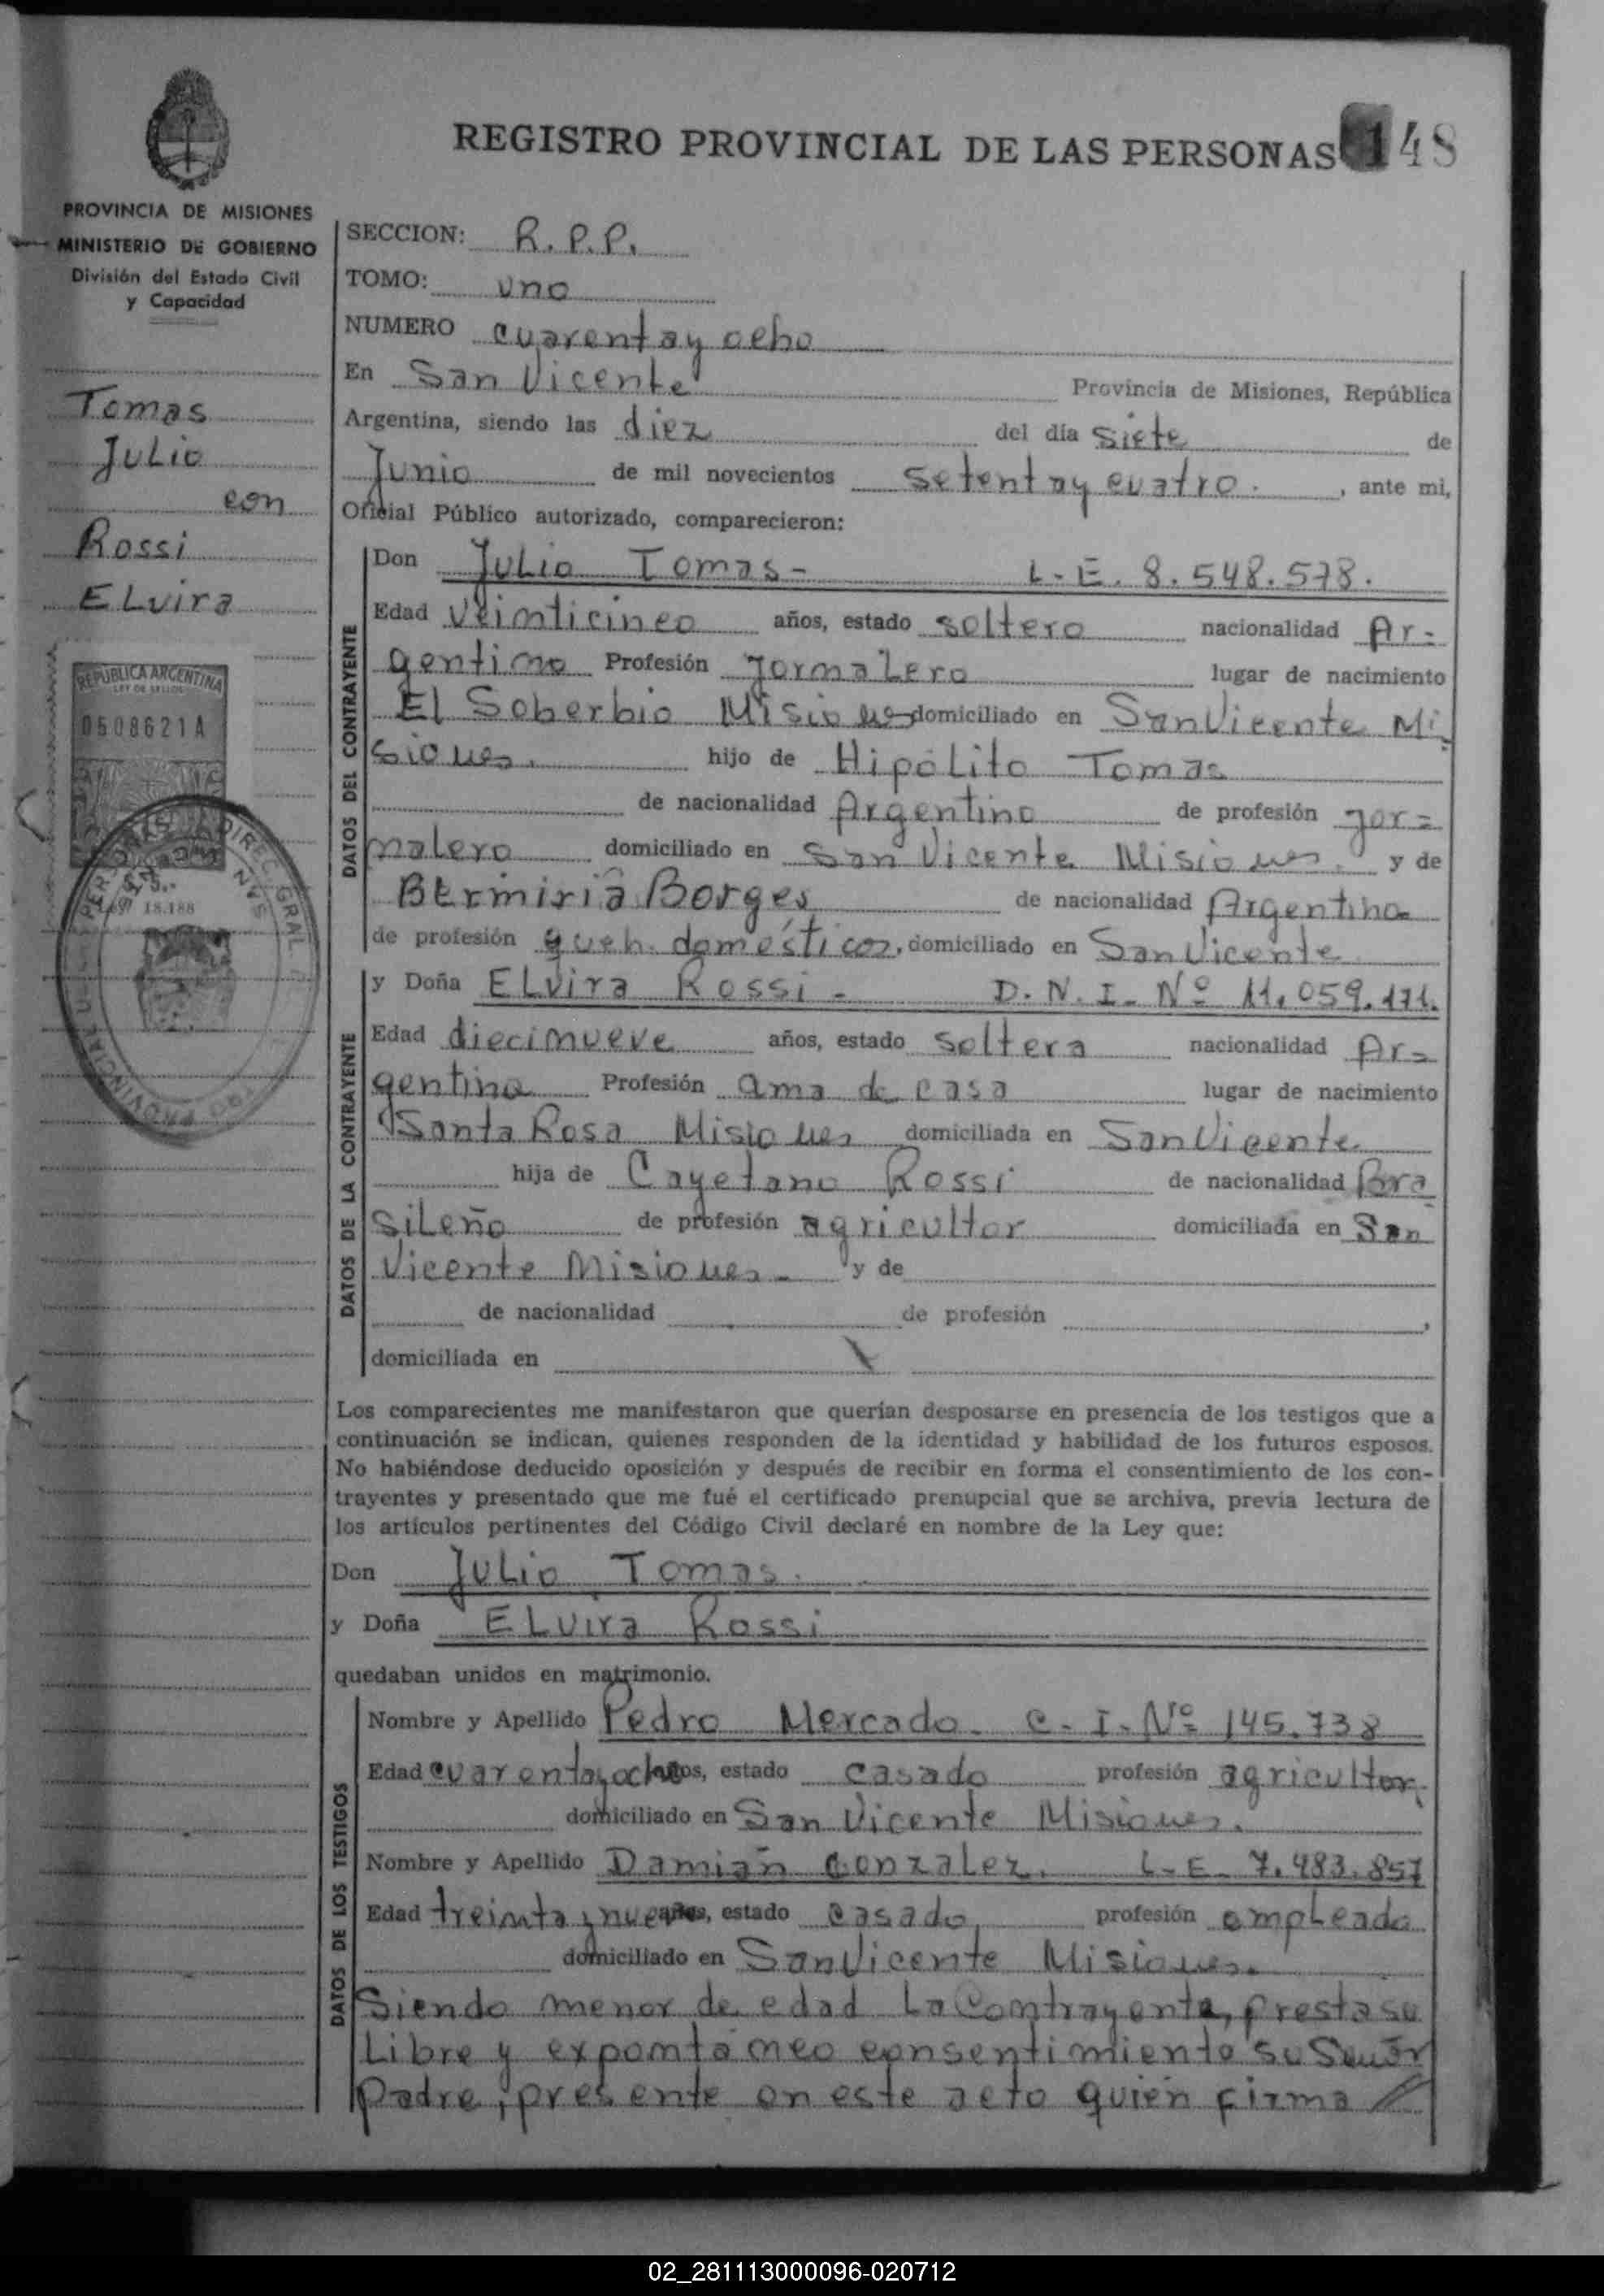 REGISTRO PROVINCIAL DE LAS PERSONAS 148
PROVINCIA DE MISIONES
MINISTERIO DE GOBIERNO
División del Estado Civil
y Capacidad
Tomas
Julio
con
Rossi
ELvira
REPUBLICA ARGENTINA
LEY DE SELLOS
0508621A
18.188
SECCION: R. P. P.
TOMO: uno
NUMERO cuarenta y ocho
En San Vicente Provincia de Misiones, República
Argentina, siendo las diez del día siete de
Junio de mil novecientos setenta y cuatro. , ante mi,
Oficial Público autorizado, comparecieron:
DATOS DEL CONTRAYENTE
Don Julio Tomas - L. E. 8.548.578.
Edad veinticinco años, estado soltero nacionalidad Ar=
gentino Profesión Jornalero lugar de nacimiento
El Soberbio Misiones domiciliado en San Vicente Mi-
siones. hijo de Hipólito Tomas
de nacionalidad Argentino de profesión Jor=
nalero domiciliado en San Vicente Misiones. y de
Bermiria Borges de nacionalidad Argentina
de profesión queh. domésticos, domiciliado en San Vicente
DATOS DE LA CONTRAYENTE
y Doña ELvira Rossi - D. N. I. Nº 11.059.171.
Edad diecinueve años, estado soltera nacionalidad Ar=
gentina Profesión ama de casa lugar de nacimiento
Santa Rosa Misiones domiciliada en San Vicente
hija de Cayetano Rossi de nacionalidad Bra
sileño de profesión agricultor domiciliada en San
Vicente Misiones - y de
de nacionalidad de profesión ,
domiciliada en
Los comparecientes me manifestaron que querían desposarse en presencia de los testigos que a
continuación se indican, quienes responden de la identidad y habilidad de los futuros esposos.
No habiéndose deducido oposición y después de recibir en forma el consentimiento de los con-
trayentes y presentado que me fué el certificado prenupcial que se archiva, previa lectura de
los artículos pertinentes del Código Civil declaré en nombre de la Ley que:
Don Julio Tomas.
y Doña ELvira Rossi
quedaban unidos en matrimonio.
DATOS DE LOS TESTIGOS
Nombre y Apellido Pedro Mercado. C. I. Nº 145.738
Edad cuarenta y ocho años, estado casado profesión agricultor.
domiciliado en San Vicente Misiones.
Nombre y Apellido Damian Gonzalez. L. E. 7.483.857
Edad treinta y nueve años, estado casado, profesión empleado
domiciliado en San Vicente Misiones.
Siendo menor de edad la contrayente, presta su
Libre y expontáneo consentimiento su Señor
padre, presente en este acto quién firma
02_281113000096-020712